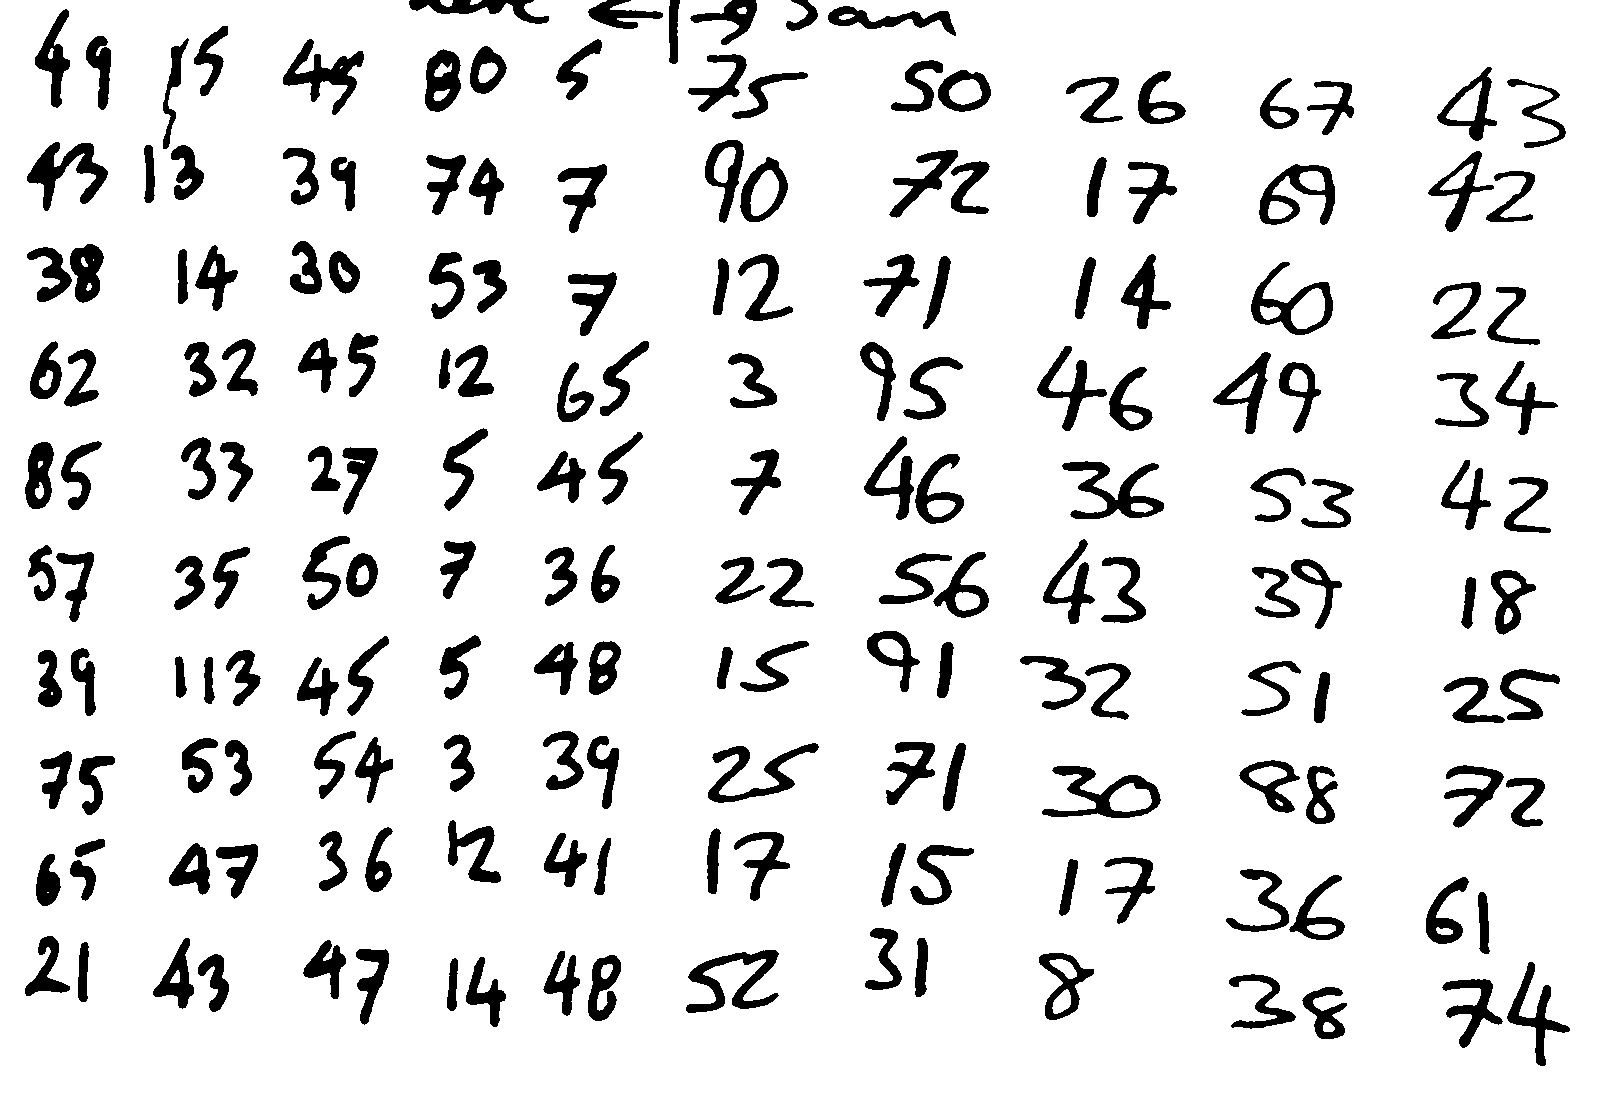 ← | → Sam
49 15 45 80 5 75 50 26 67 43
43 13 39 74 7 90 72 17 69 42
38 14 30 53 7 12 71 14 60 22
62 32 45 12 65 3 95 46 49 34
85 33 27 5 45 7 46 36 53 42
57 35 50 7 36 22 56 43 39 18
39 113 45 5 48 15 91 32 51 25
75 53 54 3 39 25 71 30 88 72
65 47 36 12 41 17 15 17 36 61
21 43 47 14 48 52 31 8 38 74